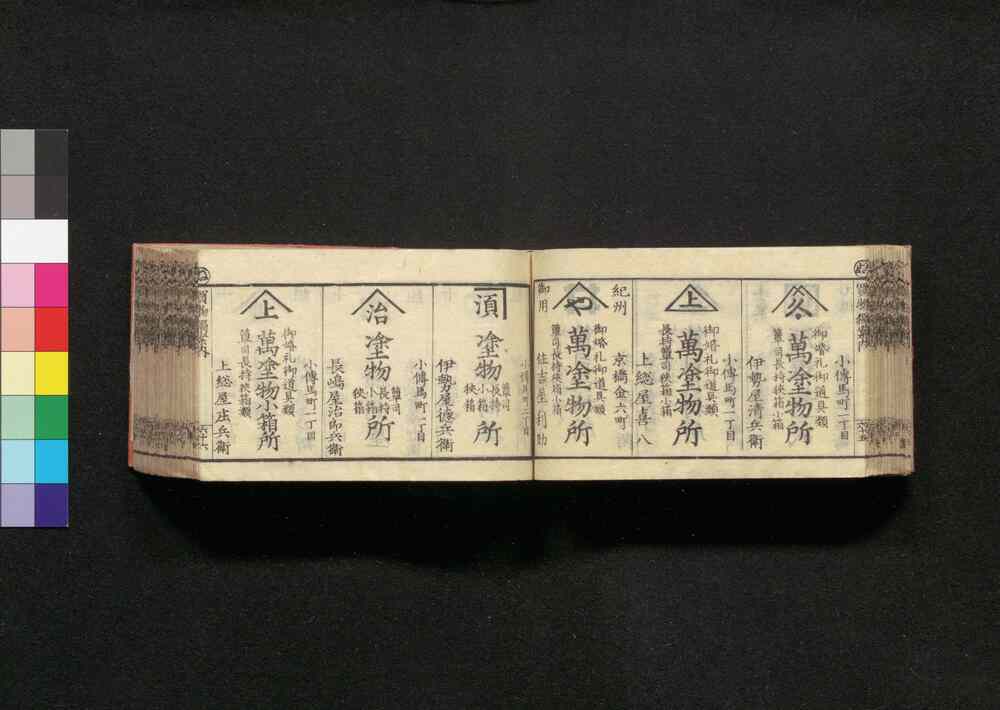 小傳馬町一丁目
御婚礼御道具類
萬塗物所
簞司長持挾箱小箱
伊勢屋清兵衛
小傳馬町一丁目
上
御婚礼御道具類
萬塗物所
長持簞司挾箱小箱
上総屋喜八
紀州
京橋金六町
や
御婚礼御道具類
萬塗物所
簞司長持挾箱小箱
御用
住吉屋利助
小傳馬町二丁目
湏
塗物
簞司
長持
小箱
挾箱
所
伊勢屋
兵衛
小傳馬町一丁目
治
塗物
簞司
長持
小箱
挾箱
所
長嶋屋治郎兵衛
小傳馬町一丁目
上
御婚礼御道具類
萬塗物小箱所
簞司長持挾箱類
上総屋庄兵衛